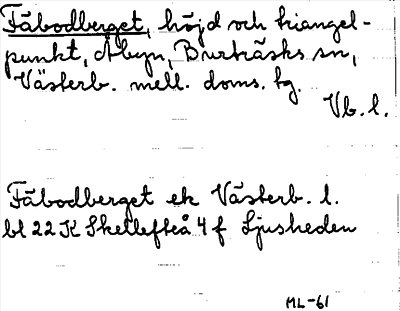 Fäbodberget, höjd och triangel-
punkt, Åbyn, Burträsks sn,
Västerb. mell. doms. tg.
Vb. l.
Fäbodberget ek Västerb. l.
bl 22 K Skellefteå 4 f Ljusheden
ML-61